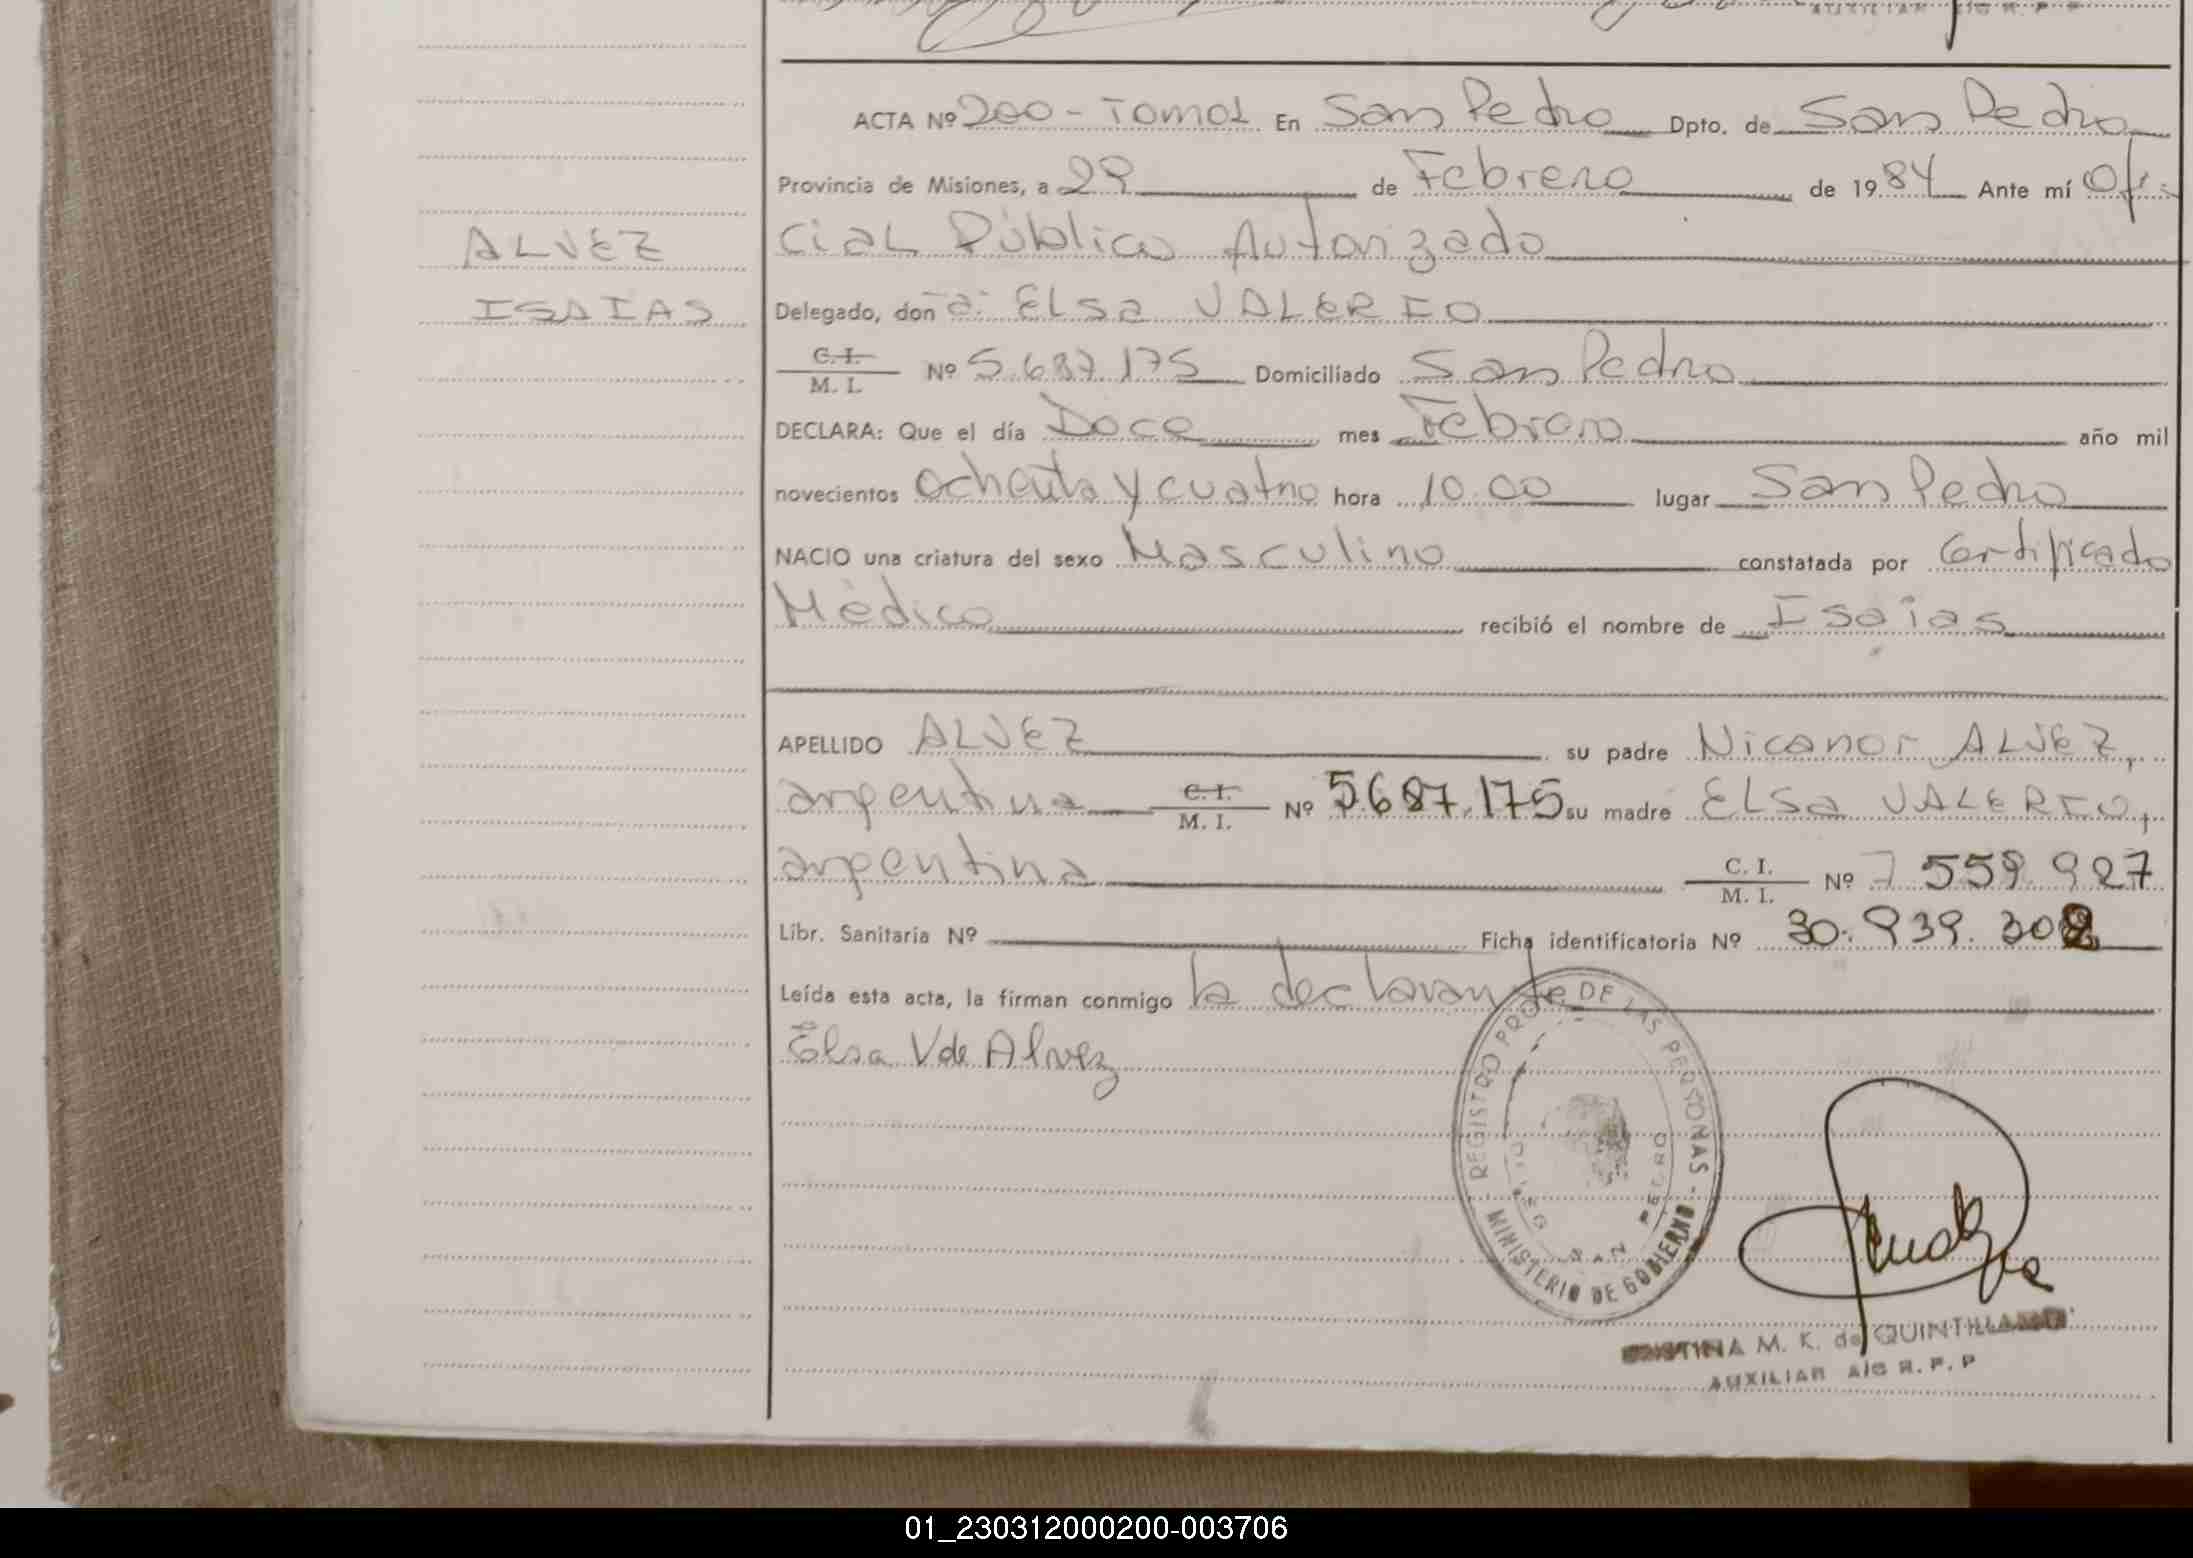 AUXILIAR A/C R. P. P
ACTA Nº 200 - TOMO1 En San Pedro Dpto. de San Pedro
Provincia de Misiones, a 29 de Febrero de 1984 Ante mí Ofi-
ALVEZ
cial Público Autorizado
ISAIAS
Delegado, don a: ELSa VALERIO
C. I. / M. I. Nº 5.687.175 Domiciliado San Pedro
DECLARA: Que el día Doce mes Febrero año mil
novecientos ochenta y cuatro hora 10.00 lugar San Pedro
NACIO una criatura del sexo Masculino constatada por Certificado
Médico recibió el nombre de Isaías
APELLIDO ALVEZ su padre Nicanor ALVEZ,
argentina C. I. / M. I. Nº 5.687.175 su madre ELSa VALERIO,
argentina C. I. / M. I. Nº 7 559.927
Libr. Sanitaria Nº Ficha identificatoria Nº 30.939.302
Leída esta acta, la firman conmigo la declarante
Elsa V de Alvez
REGISTRO PROV. DE LAS PERSONAS - MINISTERIO DE GOBIERNO
SAN PEDRO
M. K. de QUINTILLANO
AUXILIAR A/C R. P. P
01_230312000200-003706